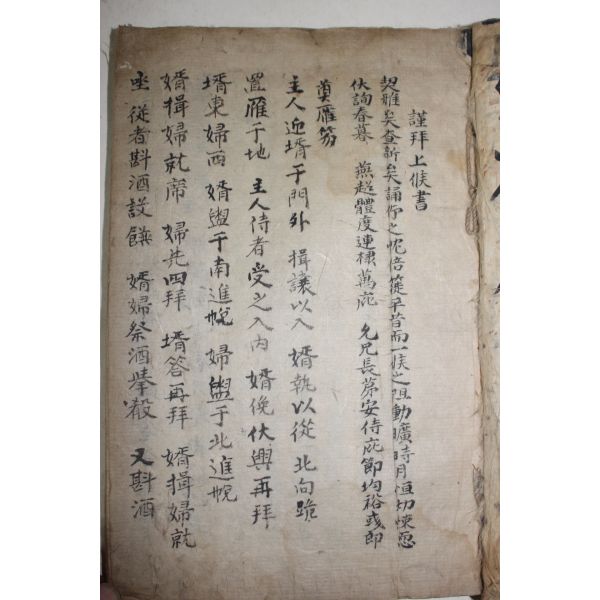 謹拜上候書
契雖矣查新矣誦仰之忱倍蓰平昔而一候之阻動曠時月恒切悚恧
伏詢春暮 燕超體度連棣萬庇 允兄長茅安侍庇節均裕或即
奠雁笏
主人迎壻于門外 揖讓以入 婿執以從 北向跪
置雁于地 主人侍者受之入內 婿俛伏興再拜
壻東婦西 婿盥于南進帨 婦盥于北進帨
婿揖婦就席 婦先四拜 壻答再拜 婿揖婦就
坐 從者斟酒設饌 婿婦祭酒擧殽 又斟酒